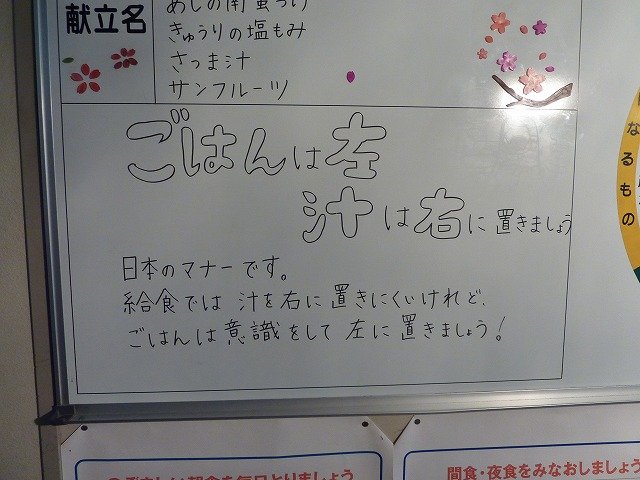 献立名
きゅうりの塩もみ
さつま汁
サンフルーツ
ごはんは左
汁は右に置きましょう
日本のマナーです。
給食では 汁を右に置きにくいけれど、
ごはんは意識をして 左に置きましょう!
なるもの
間食・夜食をみなおしましょう